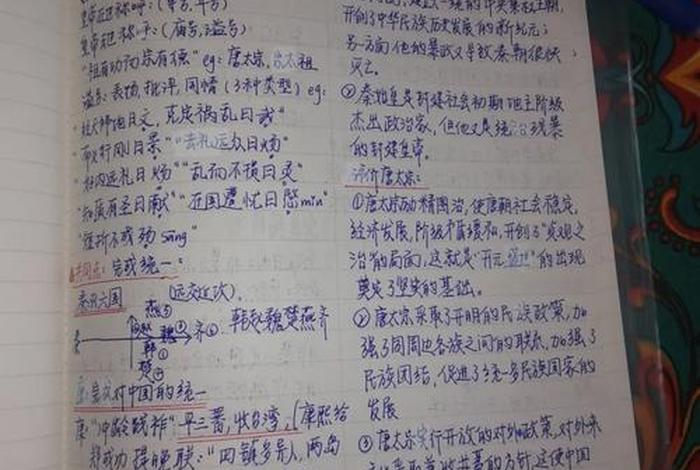 皇帝在世称呼：(尊号,年号)
皇帝去世称呼：(庙号,谥号)
"祖有功而宗有德" eg：唐太宗,宋太祖
谥号：表扬,批评,同情 (3种类型) eg：
经天纬地曰文，克定祸乱曰武"
布义行刚曰景" "去礼远众曰炀"
好内远礼曰炀" "乱而不损曰灵"
"知质有圣曰献" "在国遭忧曰愍min"
"短折不成殇 sāng"
共同点：完成统一：
秦灭六国 (远交近攻).
燕⑤
赵③ 魏④ 齐⑥：韩赵魏楚燕齐
秦
韩①
楚
康：完成对中国的统一
康"冲龄践祚"平三藩,收台湾，(康熙给
郑成功 挽联："四镇多异,两岛
统一的中央集权王朝,
开创了中华民族历史发展的新纪元；
另一方面他的暴政又导致秦朝很快
灭亡。
②秦始皇是封建社会初期地主阶级
杰出政治家，但他又是统治残暴
的封建皇帝。
评价唐太宗：
①唐太宗励精图治，使唐朝社会稳定，
经济发展，阶级矛盾缓和，开创了"贞观之
治"的局面，这就是"开元盛世"的出现
奠定了坚实的基础。
②唐太宗采取了开明的民族政策，加
强了同周边各族之间的联系，加强了
民族团结，促进了统一多民族国家的
发展
③唐太宗实行开放的对外政策，对外来
文化采取兼收并蓄的方针，这使中国